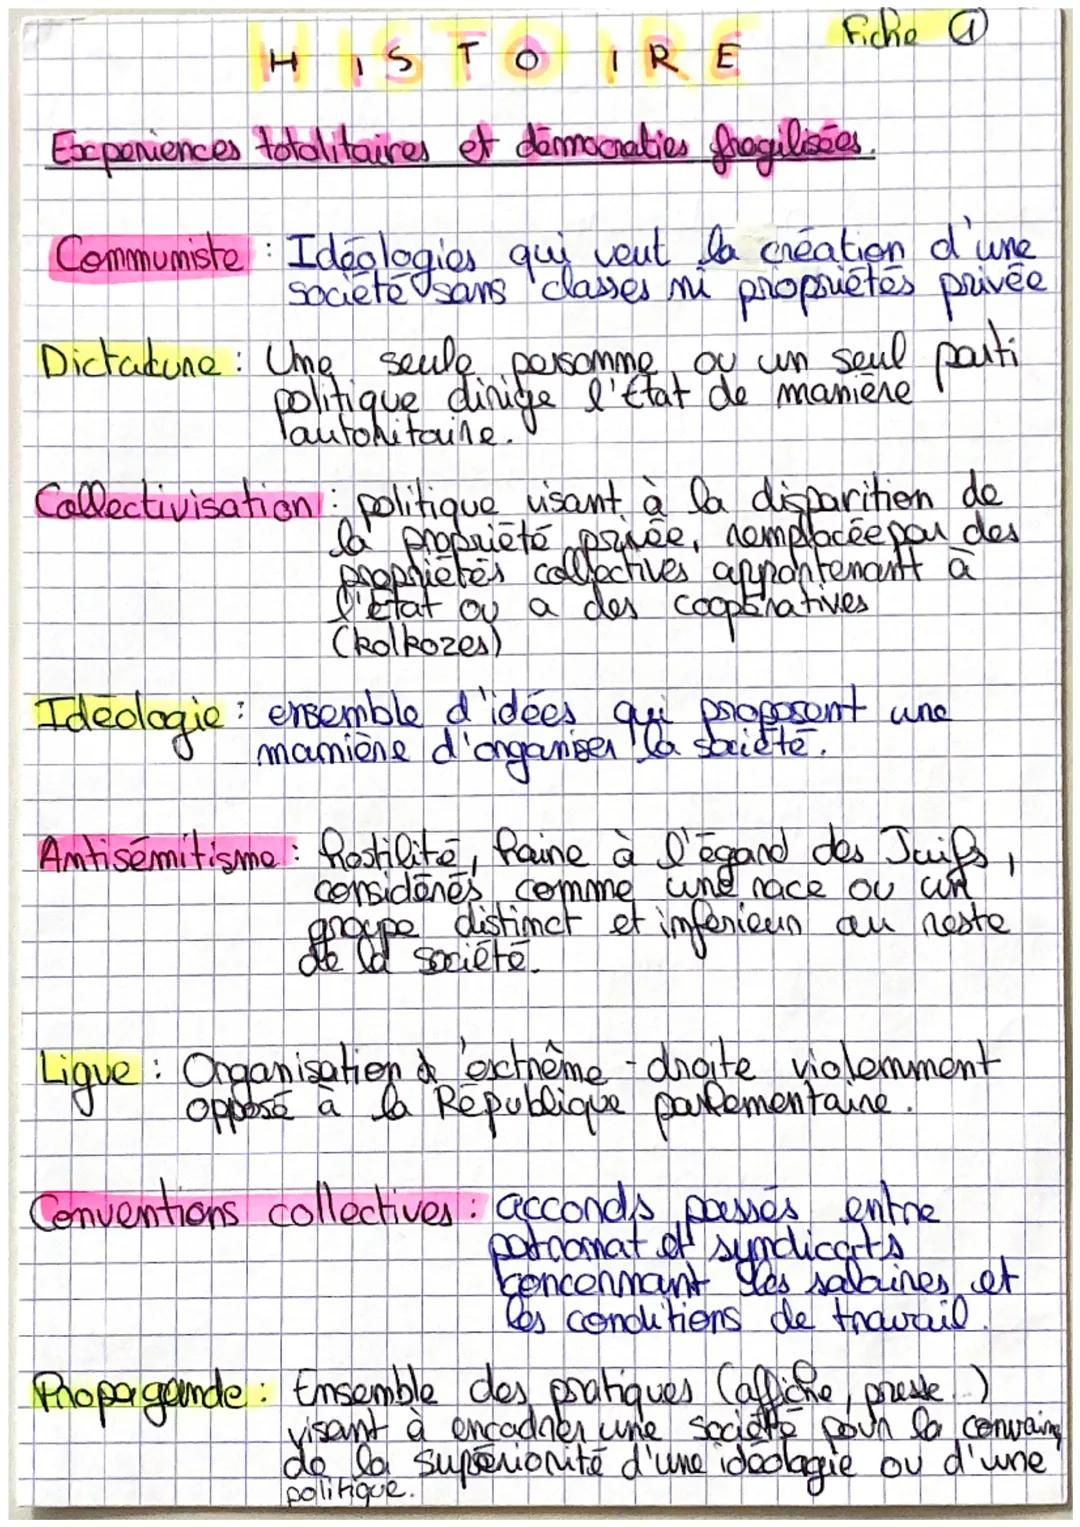 Fiche ①
HISTOIRE
Expériences totalitaires et démocraties fragilisées.
Communiste : Idéologies qui veut la création d'une
société sans classes ni propriétés privée
Dictature : Une seule personne ou un seul parti
politique dirige l'État de manière
autoritaire.
Collectivisation : politique visant à la disparition de
la propriété privée, remplacée par des
propriétés collectives appartenant à
l'état ou a des coopératives
(kolkozes)
Idéologie : ensemble d'idées qui proposent une
manière d'organiser la société.
Antisémitisme : hostilité, haine à l'égard des Juifs,
considérés comme une race ou un
groupe distinct et inférieur au reste
de la société.
Ligue : Organisation d'extrême-droite violemment
opposé à la République parlementaire.
Conventions collectives : accords passés entre
patronat et syndicats
concernant les salaires et
les conditions de travail.
Propagande : Ensemble des pratiques (affiche, presse..)
visant à encadrer une société pour la convaincre
de la supériorité d'une idéologie ou d'une
politique.